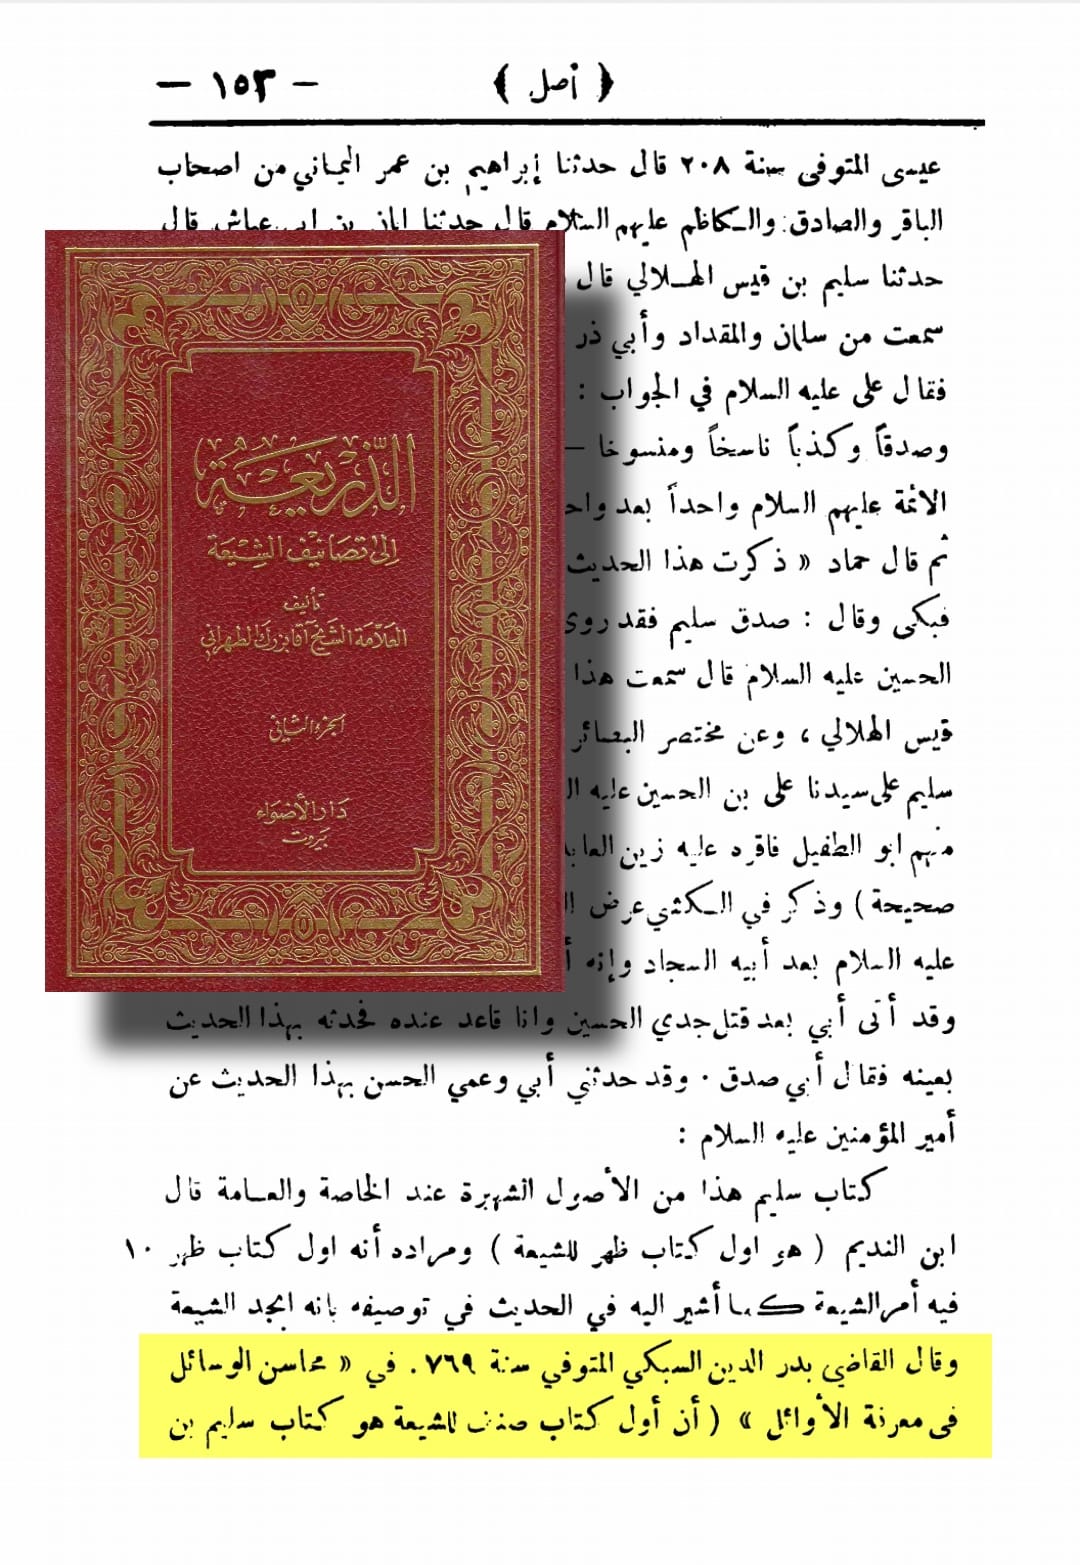 ﴿ أصل ﴾ — ١٥٣ —
عيسى المتوفى سنة ٢٠٨ قال حدثنا إبراهيم بن عمر اليماني من اصحاب
الباقر والصادق والكاظم عليهم السلام قال حدثنا ابان بن ابي عياش قال
حدثنا سليم بن قيس الهلالي قال
سمعت من سلمان والمقداد وأبي ذر
فقال على عليه السلام في الجواب :
وصدقاً وكذباً ناسخاً ومنسوخا —
الائمة عليهم السلام واحداً بعد
ثم قال حماد « ذكرت هذا الحديث
فبكى وقال : صدق سليم فقد روى
الحسين عليه السلام قال سمعت هذا
قيس الهلالي ، وعن مختصر البصائر
سليم على سيدنا على بن الحسين عليه
منهم ابو الطفيل فاقره عليه زين
صحيحة ) وذكر في الكشي عرض
عليه السلام بعد أبيه السجاد وإنه
وقد أتى أبي بعد قتل جدي الحسين وانا قاعد عنده فحدثه بهذا الحديث
بعينه فقال أبي صدق . وقد حدثني أبي وعمي الحسن بهذا الحديث عن
أمير المؤمنين عليه السلام :
كتاب سليم هذا من الأصول الشهيرة عند الخاصة والعامة قال
ابن النديم ( هو اول كتاب ظهر للشيعة ) ومراده أنه اول كتاب ظهر ١٠
فيه أمر الشيعة كما أشير اليه في الحديث في توصيفه بانه ابجد الشيعة
وقال القاضي بدر الدين السبكي المتوفي سنة ٧٦٩ . في « محاسن الوسائل
فى معرفة الأوائل » ( أن أول كتاب صنف للشيعة هو كتاب سليم بن
الذريعة
إلى تصانيف الشيعة
تأليف
العلامة الشيخ آقا بزرك الطهراني
الجزء الثاني
دار الأضواء
بيروت